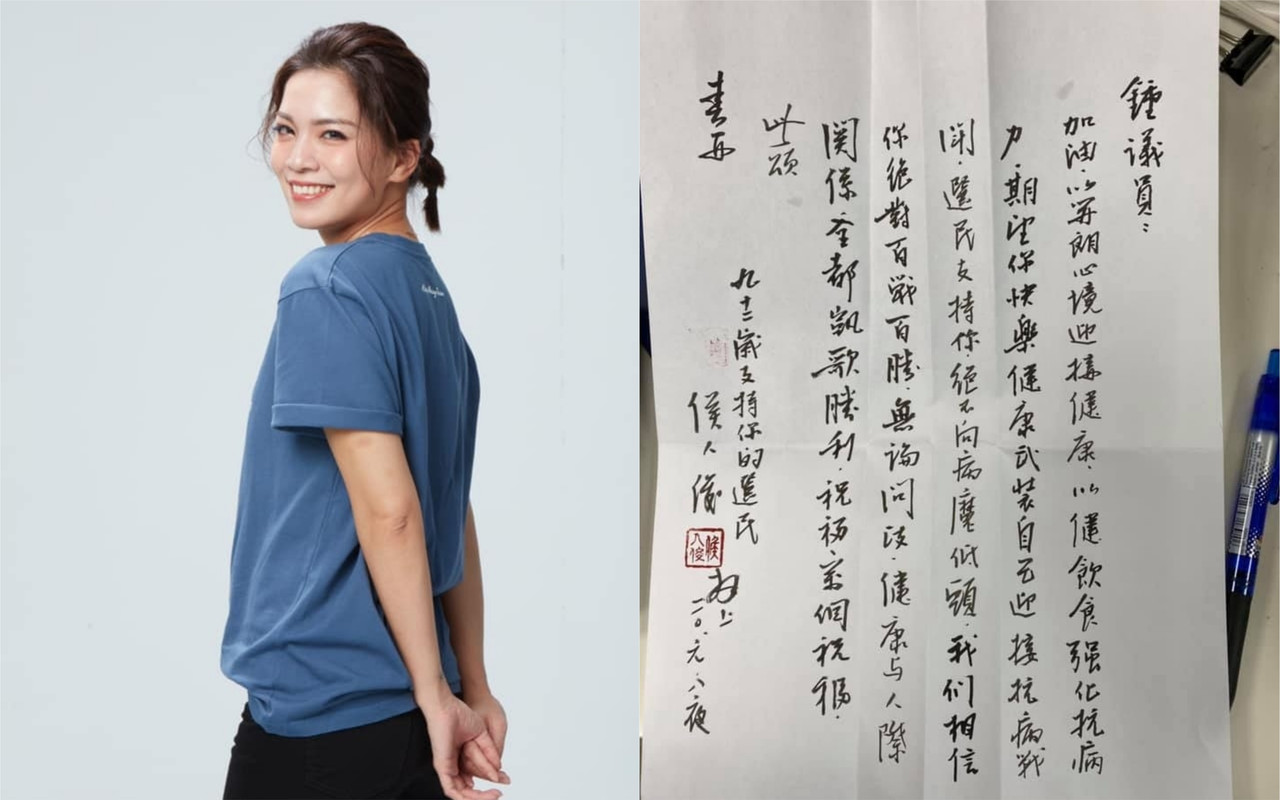 鍾議員：
加油．以開朗心境迎接健康．以健飲食强化抗病
力．期望你快樂健康武裝自己迎接抗病戰
鬪．選民支持你．絕不向病魔低頭．我们相信
你絕對百戰百勝．無論問政．健康与人際
関係全都凱歌勝利．祝福．萬個祝福．
此頌
九十二歲支持你的選民
侯人俊
侯人俊
二〇.元.八.夜